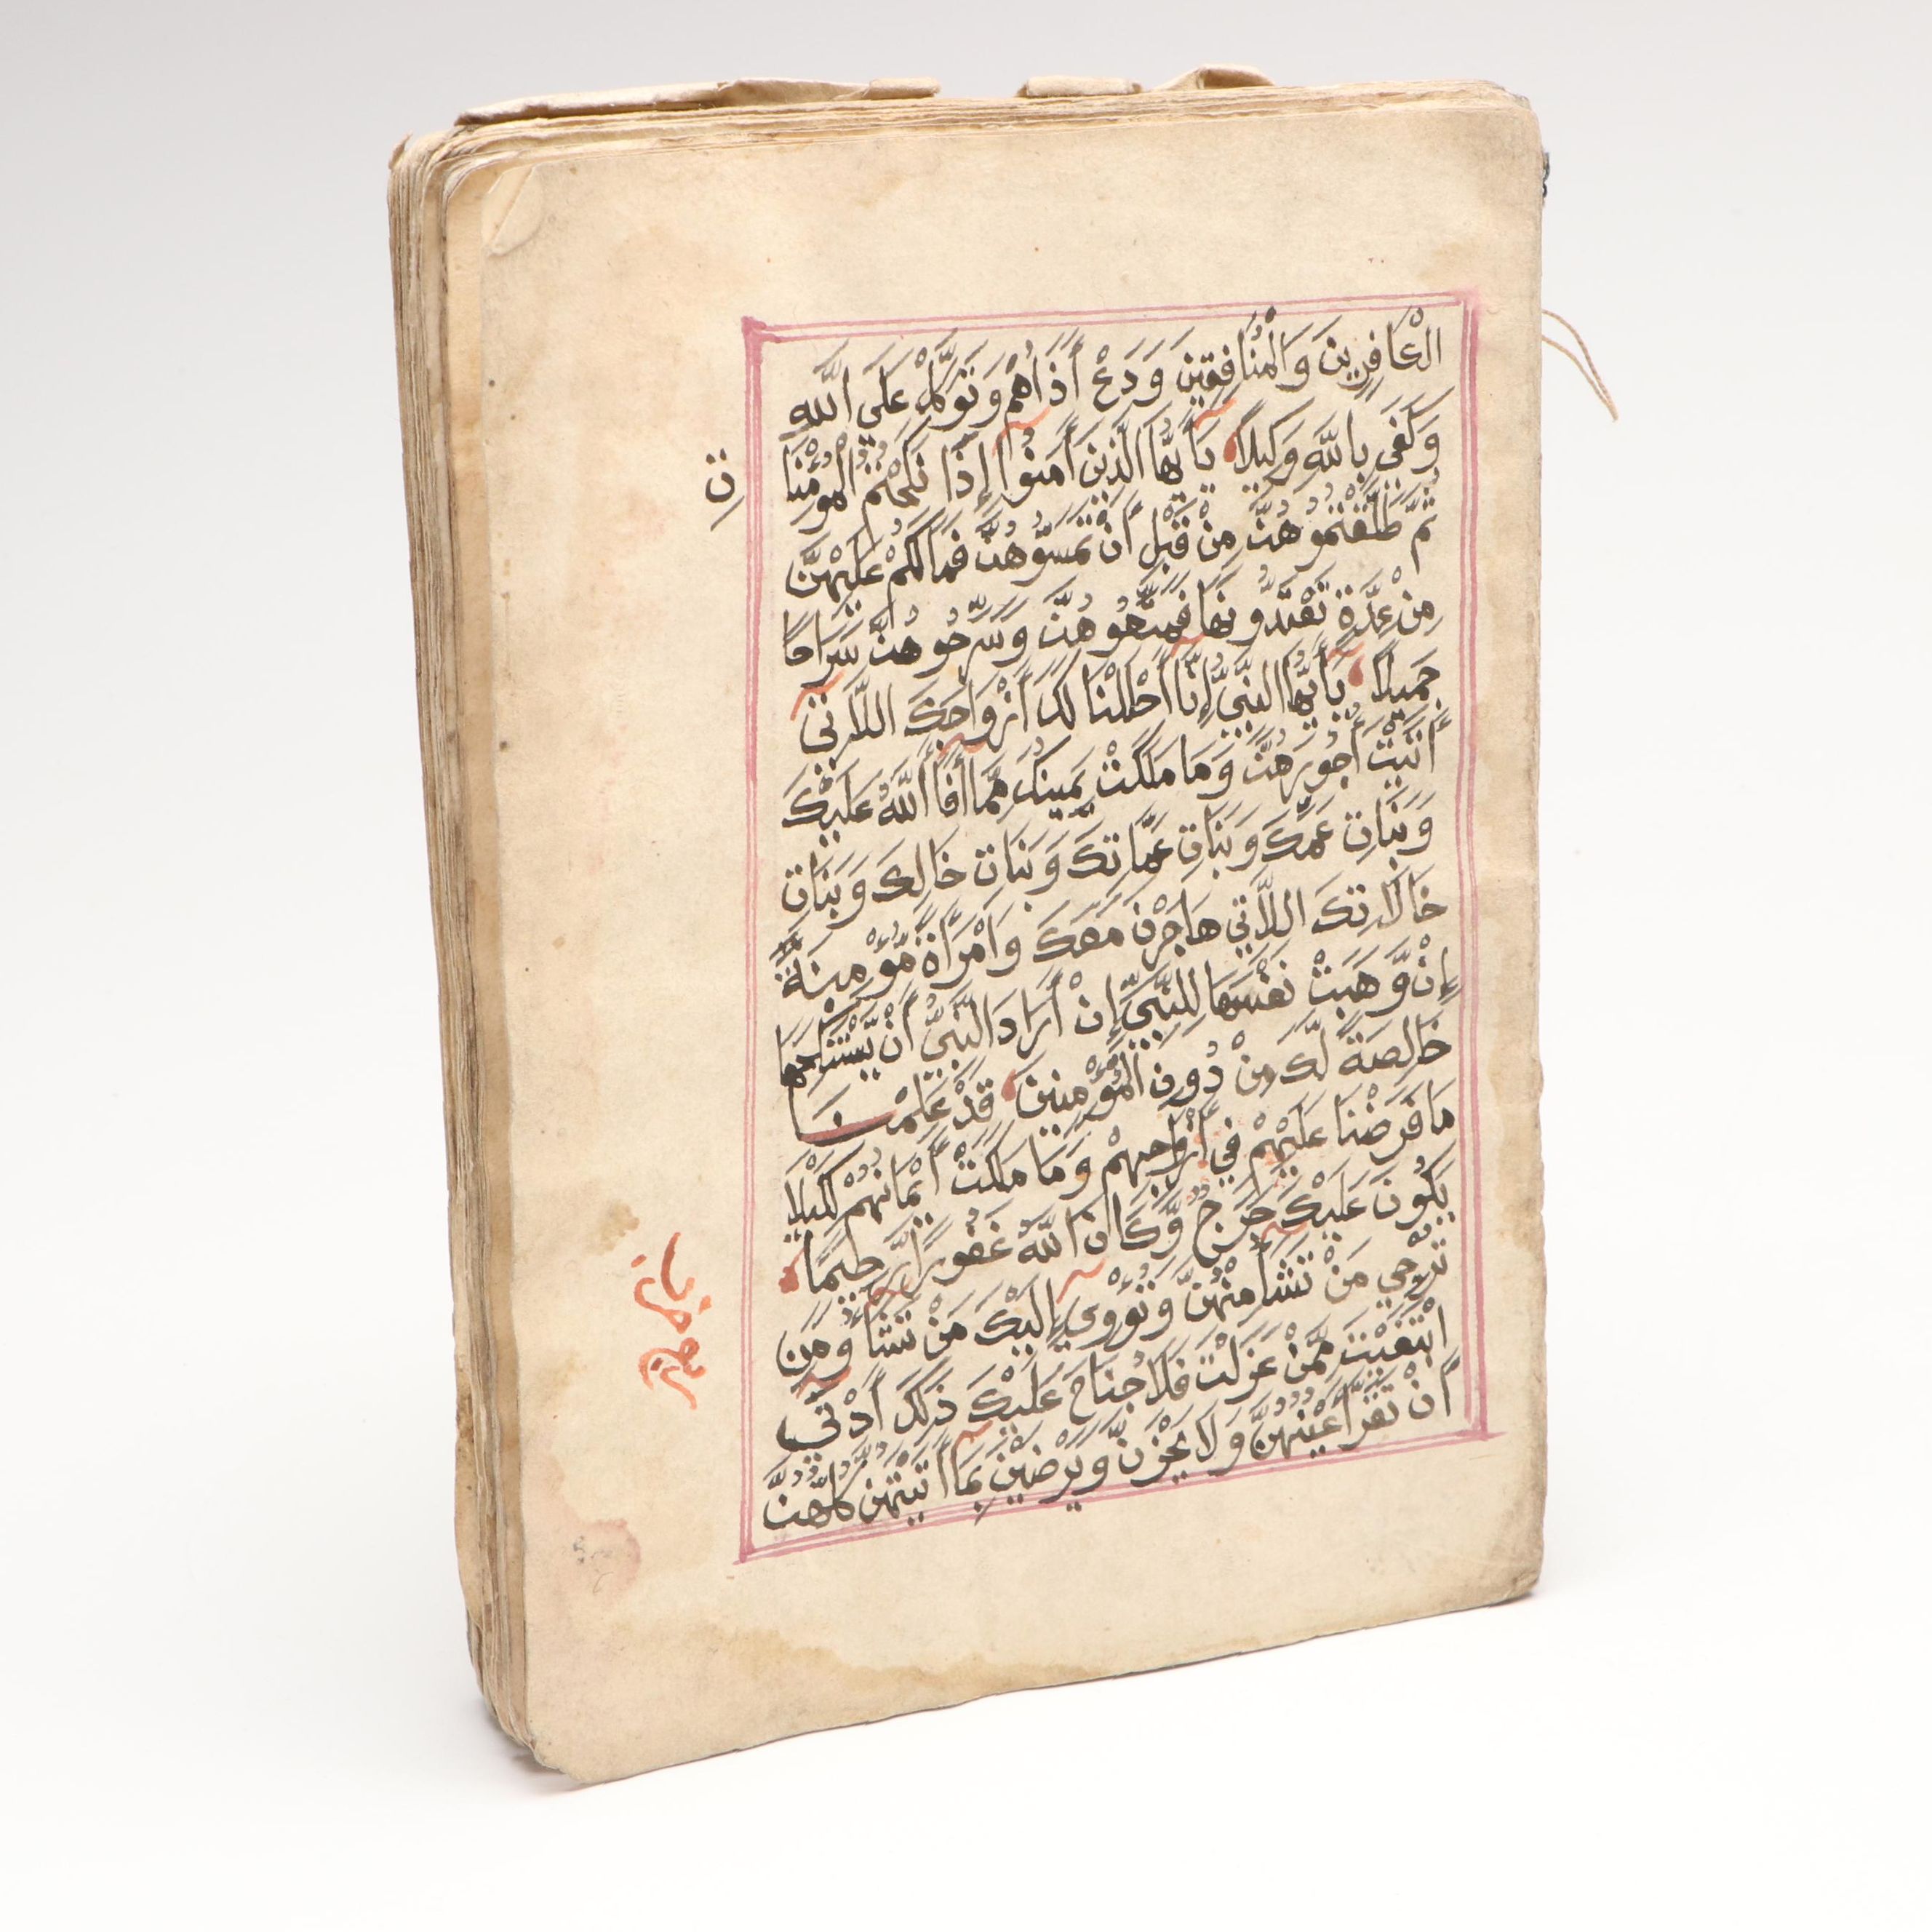 الْكَافِرِينَ وَالْمُنَافِقِينَ وَدَعْ أَذَاهُمْ وَتَوَكَّلْ عَلَي اللَّهِ
وَكَفَي بِاللَّهِ وَكِيلًا يَاأَيُّهَا الَّذِينَ أَمَنُوا إِذَا نَكَحْتُمُ الْمُؤْمِنَا
تِ
ثُمَّ طَلَّقْتُمُوهُنَّ مِنْ قَبْلِ أَنْ تَمَسُّوهُنَّ فَمَا لَكُمْ عَلَيْهِنَّ
مِنْ عِدَّةٍ تَعْتَدُّونَهَا فَمَتِّعُوهُنَّ وَسَرِّحُوهُنَّ سَرَاحًا
جَمِيلًا يَاأَيُّهَا النَّبِيُّ إِنَّا أَحْلَلْنَا لَكَ أَزْوَاجَكَ اللَّاتِي
أَتَيْتَ أُجُورَهُنَّ وَمَا مَلَكَتْ يَمِينُكَ مِمَّا أَفَا اللَّهُ عَلَيْكَ
وَبَنَاتِ عَمِّكَ وَبَنَاتِ عَمَّاتِكَ وَبَنَاتِ خَالِكَ وَبَنَاتِ
خَالَاتِكَ اللَّاتِي هَاجَرْنَ مَعَكَ وَامْرَأَةً مُّؤْمِنَةً
إِنْ وَّهَبَتْ نَفْسَهَا لِلنَّبِيِّ إِنْ أَرَادَ النَّبِيُّ أَنْ يَّسْتَنْكِحَهَا
خَالِصَةً لَّكَ مِنْ دُونِ الْمُؤْمِنِينَ قَدْ عَلِمْنَا
مَا فَرَضْنَا عَلَيْهِمْ فِي أَزْوَاجِهِمْ وَمَا مَلَكَتْ أَيْمَانُهُمْ لِكَيْلَا
يَكُونَ عَلَيْكَ حَرَجٌ وَّكَانَ اللَّهُ غَفُورًا رَّحِيمًا
تُرْجِي مَنْ تَشَا مِنْهُنَّ وَتُؤْوِي إِلَيْكَ مَنْ تَشَا وَمَنِ
ابْتَغَيْتَ مِمَّنْ عَزَلْتَ فَلَا جُنَاحَ عَلَيْكَ ذَلِكَ أَدْنَي
أَنْ تَقَرَّ أَعْيُنُهُنَّ وَلَا يَحْزَنَّ وَيَرْضَيْنَ بِمَا أَتَيْتَهُنَّ كُلُّهُنَّ